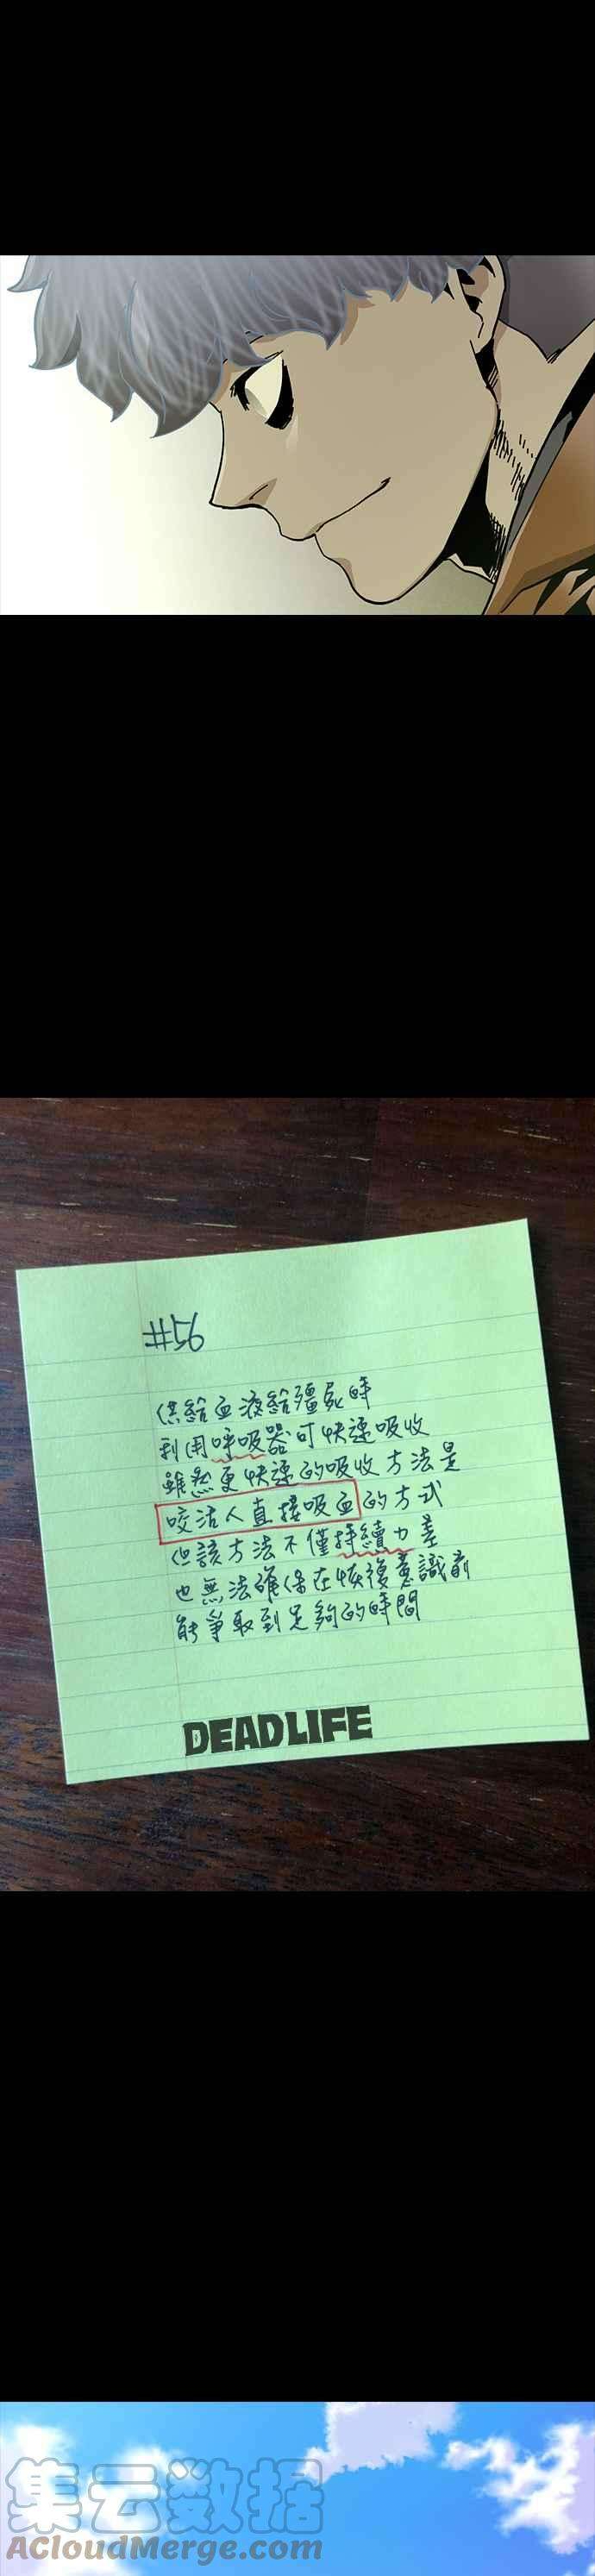 #56
供給血液給殭屍時
利用呼吸器可快速吸收
雖然更快速的吸收方法是
咬活人直接吸血的方式
但該方法不僅持續力差
也無法確保在恢復意識前
能爭取到足夠的時間
DEADLIFE
集云数据
ACloudMerge.com